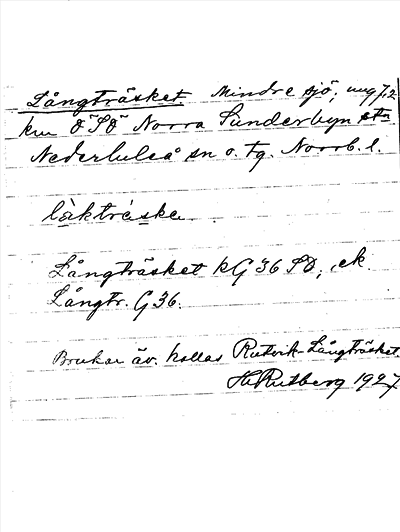 Långträsket. Mindre sjö, ung 7,2
km ÖSÖ Norra Sunderbyn stn
Nederluleå sn o. tg. Norrb. l.
låkträske
Långträsket kG 36 SÖ, ek.
Långtr. G 36.
Brukar äv. kallas Rutvik-Långträsket.
H Rutberg 1927